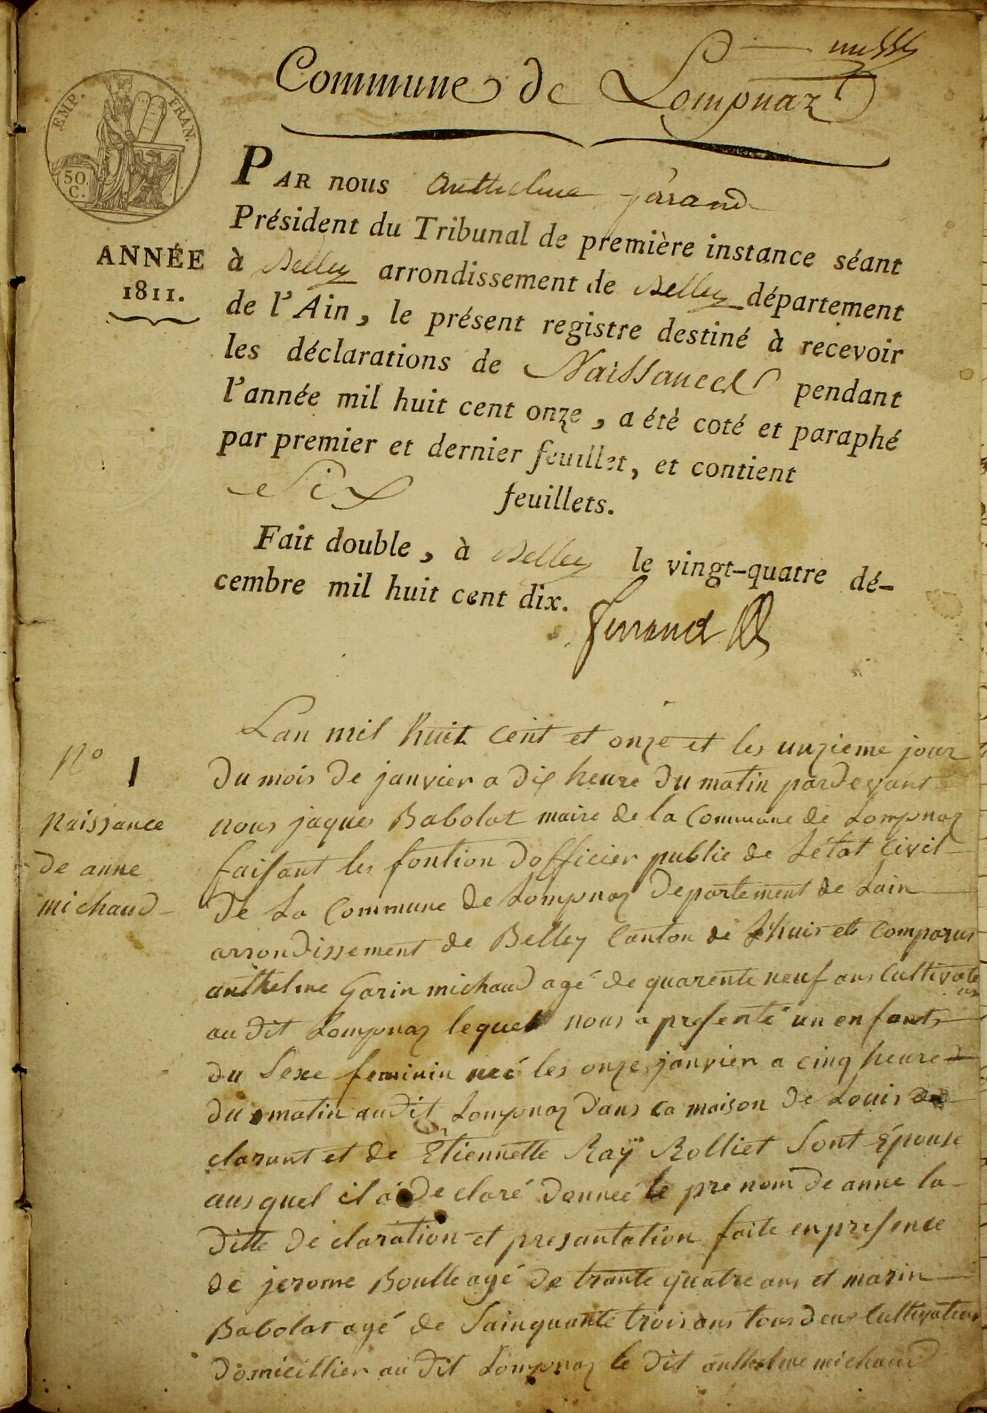 Commune de Lompnaz
EMP. FRAN.
50 C.
ANNÉE
1811.
PAR nous anthelme ferrand
Président du Tribunal de première instance séant
à Belley arrondissement de Belley département
de l'Ain, le présent registre destiné à recevoir
les déclarations de Naissances pendant
l'année mil huit cent onze, a été coté et paraphé
par premier et dernier feuillet, et contient
Six feuillets.
Fait double, à Belley le vingt-quatre dé-
cembre mil huit cent dix.
ferrand
N° 1
Naissance
de anne
michaud
Lan mil huit cent et onze et les unzieme jour
du mois de janvier a dix heure du matin pardevant
nous jaques Babolat maire de la Commune de Lompnaz
faisant les fontion dofficier public de Létat Civil
de La Commune de Lompnaz Departement de Lain
arrondissement de Belley Canton de Lhuis et Comparus
anthelme Garin michaud agé de quarente neuf ans Cultivateur
au dit Lompnaz lequel nous a presenté un enfant
du Sexe feminin neé les onze janvier a cinq heure
du matin audit Lompnaz dans ca maison de Louis de
clarant et de Etiennette Raÿ Rolliet Sont Epouse
ausquel il a de claré donnee le pre nom de anne la
ditte de claration et presantation faite enpresence
de jerome Boulle agé de trante quatre ans et marin
Babolat agé de Sainquante trois ans tous deux Cultivateur
domicillier au dit Lompnaz le dit anthelme michaud